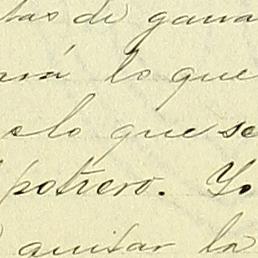 tas de gana
rá lo que
olo que se
potrero. Yo
quitar la